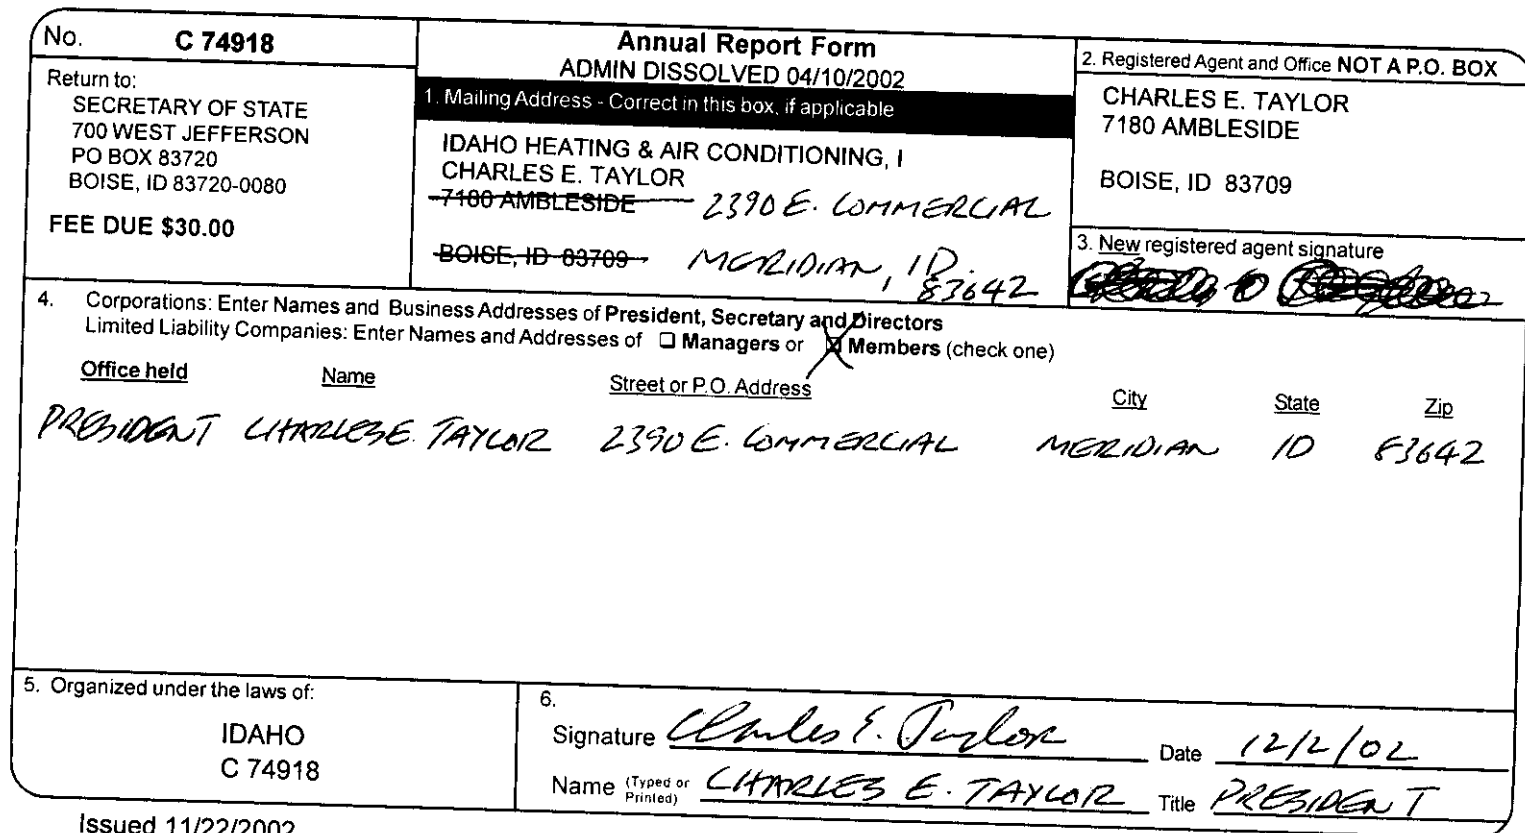 No. C 74918
Return to:
SECRETARY OF STATE
700 WEST JEFFERSON
PO BOX 83720
BOISE, ID 83720-0080
FEE DUE $30.00
Annual Report Form
ADMIN DISSOLVED 04/10/2002
1. Mailing Address - Correct in this box, if applicable
IDAHO HEATING & AIR CONDITIONING, I
CHARLES E. TAYLOR
7180 AMBLESIDE 2390 E. COMMERCIAL
BOISE, ID 83709 MERIDIAN, ID.
83642
2. Registered Agent and Office NOT A P.O. BOX
CHARLES E. TAYLOR
7180 AMBLESIDE
BOISE, ID 83709
3. New registered agent signature
4. Corporations: Enter Names and Business Addresses of President, Secretary and Directors
Limited Liability Companies: Enter Names and Addresses of ☐ Managers or ☒ Members (check one)
Office held Name Street or P.O. Address City State Zip
PRESIDENT CHARLES E. TAYLOR 2390 E. COMMERCIAL MERIDIAN ID 83642
5. Organized under the laws of:
IDAHO
C 74918
6.
Signature Charles E. Taylor Date 12/2/02
Name (Typed or Printed) CHARLES E. TAYLOR Title PRESIDENT
Issued 11/22/2002